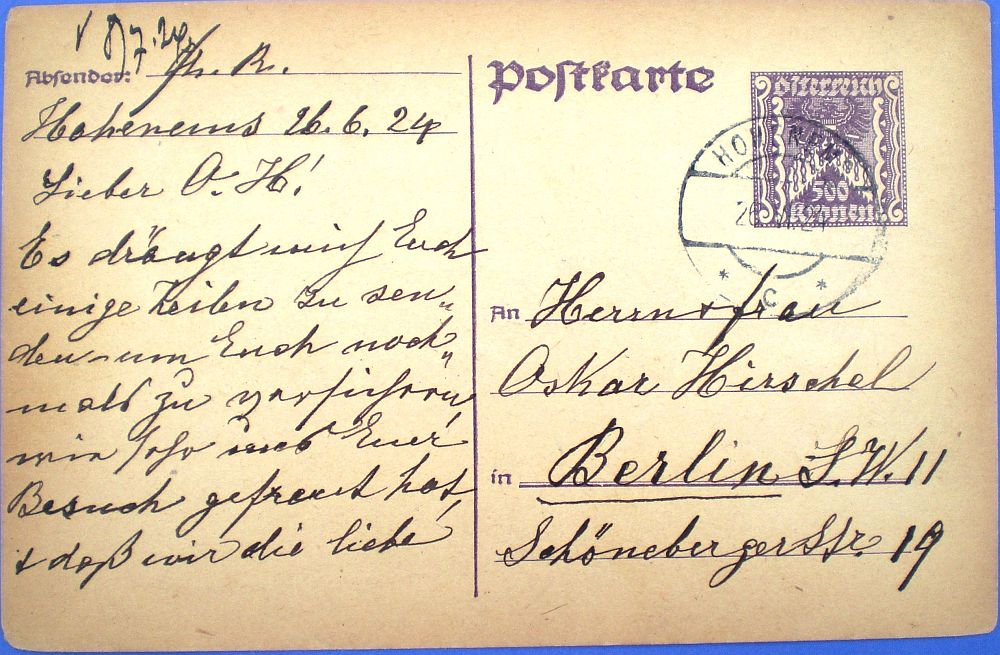 8/7.24
Absender: Th. R.
Hohenems 26.6.24
Lieber O. H!
Es drängt mich Euch
einige Zeilen zu sen„
den um Euch noch„
mals zu versichern,
wie sehr uns Euer
Besuch gefreut hat,
+ daß wir die liebe
Postkarte
Österreich
500
Kronen
26 VI 24
C
An Herrn + frau
Oskar Hirschel
in Berlin S.W. 11
Schönebergerstr. 19